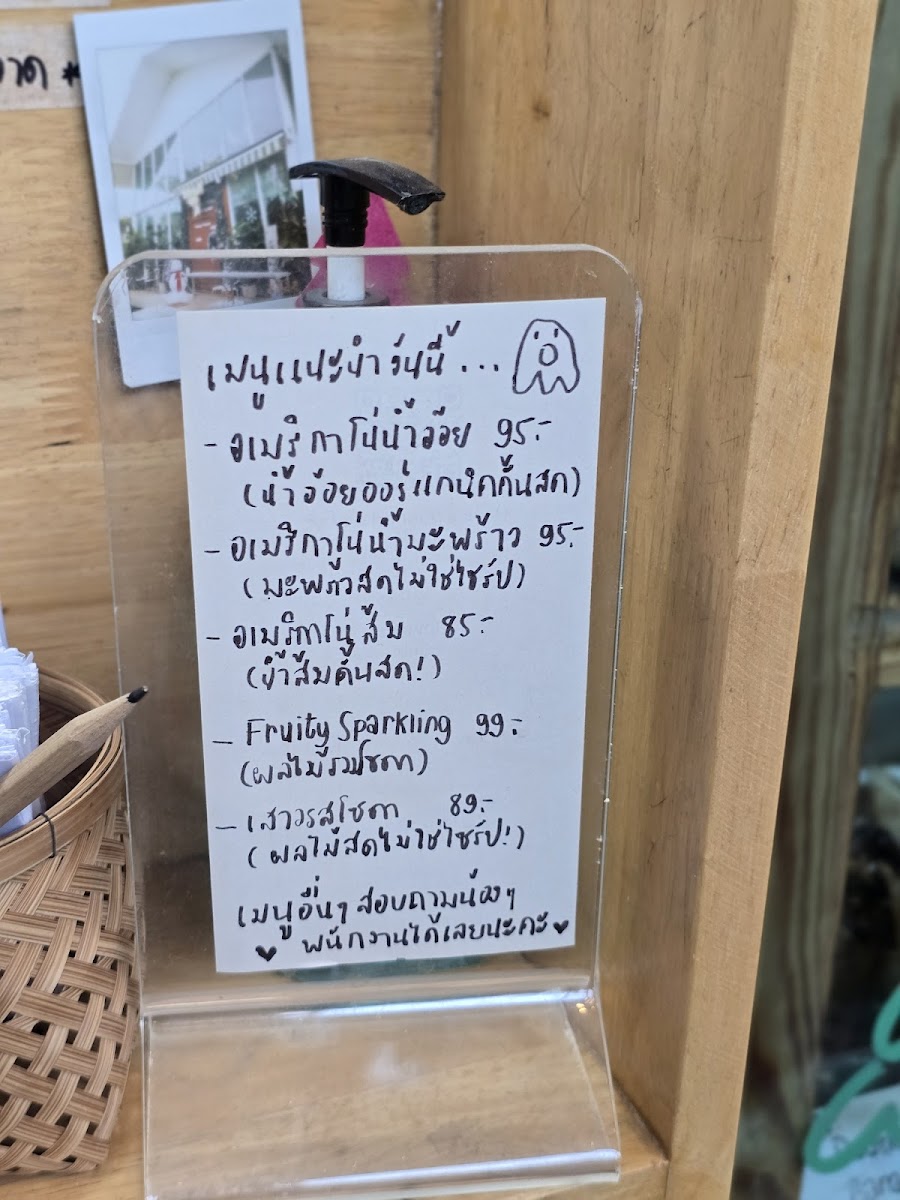 เมนูแนะนำวันนี้ ...
- อเมริกาโน่น้ำอ้อย 95.-
(น้ำอ้อยออร์แกนิคคั้นสด)
- อเมริกาโน่น้ำมะพร้าว 95.-
(มะพร้าวสดไม่ใช่ไซรัป)
- อเมริกาโน่ส้ม 85.-
(น้ำส้มคั้นสด!)
- Fruity Sparkling 99.-
(ผลไม้รวมโซดา)
- เสาวรสโซดา 89.-
(ผลไม้สดไม่ใช่ไซรัป!)
เมนูอื่นๆ สอบถามน้องๆ
♥ พนักงานได้เลยนะคะ ♥